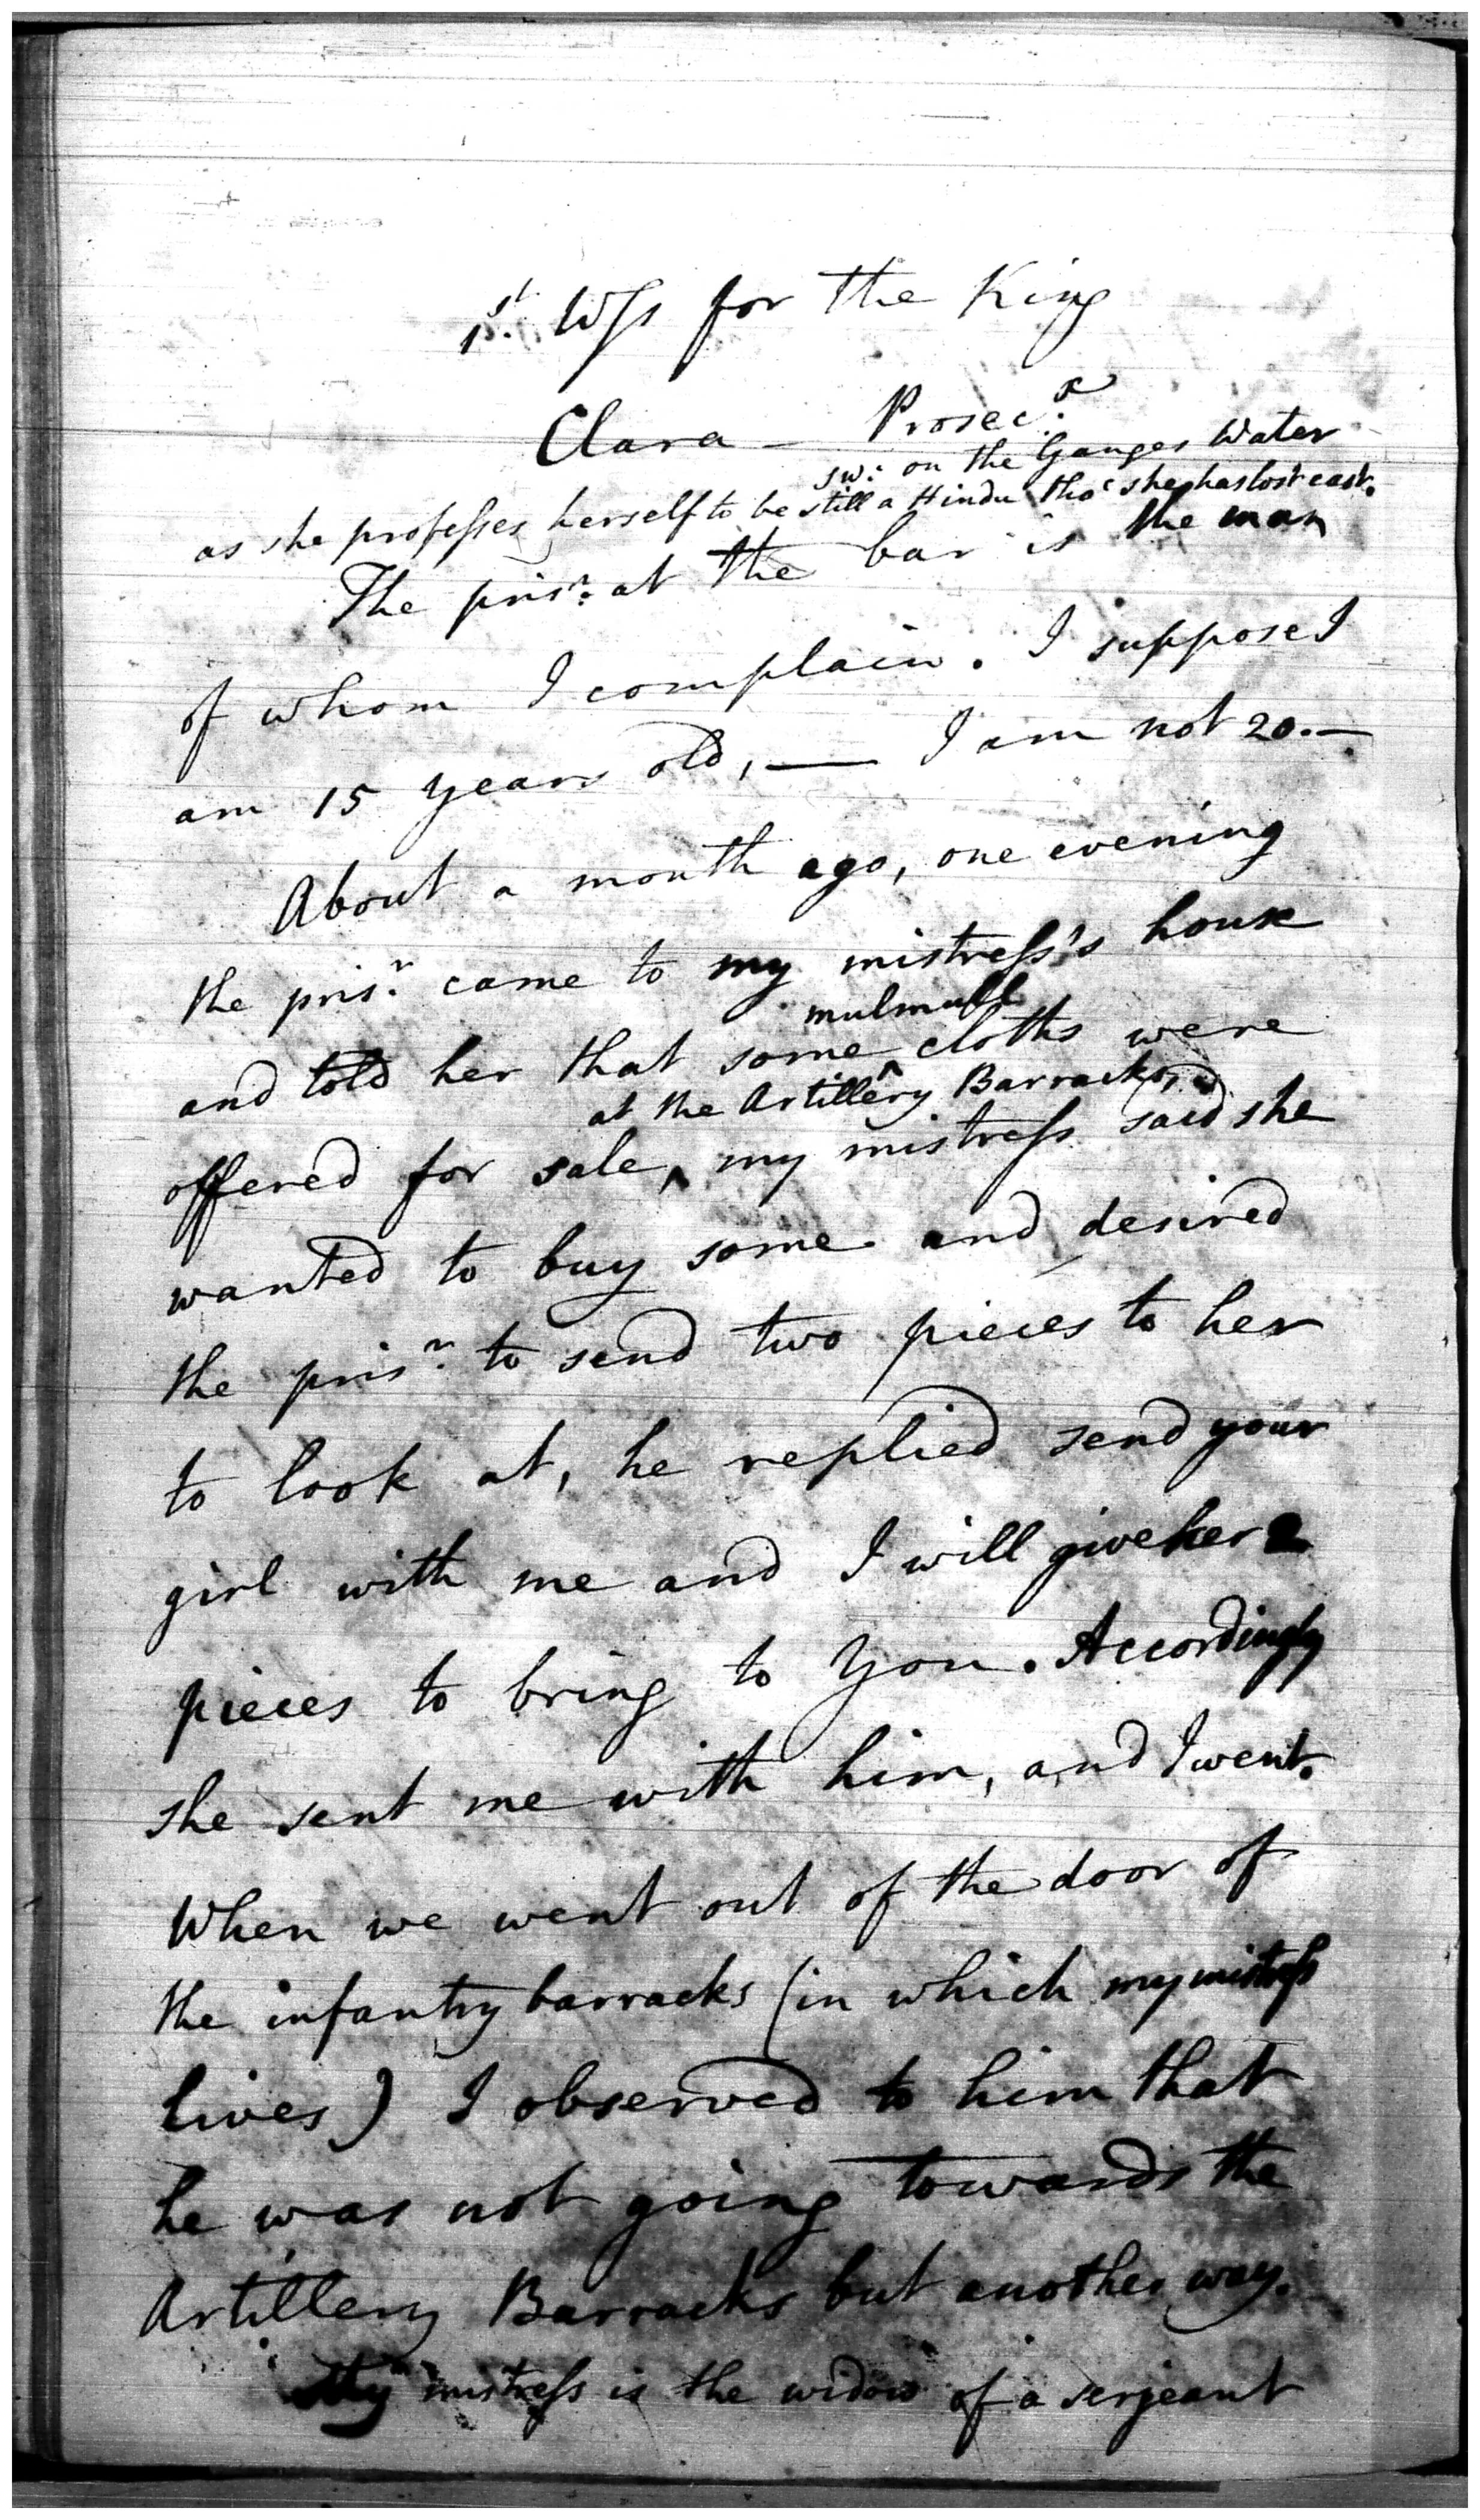 1st. Wss for the King
Clara — Prosecx.
sw: on the Ganges Water
as she professes herself to be still a Hindu tho' she has lost cast.
The prisr. at the bar is the man
of whom I complain. I suppose I
am 15 years old, — I am not 20. —
About a month ago, one evening
the prisr. came to my mistress's house
mulmull
and told her that some ^ cloths were
at the Artillery Barracks,
offered for sale ^ my mistress said she
wanted to buy some and desired
the prisr. to send two pieces to her
to look at, he replied send your
girl with me and I will give her 2
pieces to bring to you. Accordingly
she sent me with him, and I went.
When we went out of the door of
the infantry barracks (in which my mistress
lives) I observed to him that
he was not going towards the
Artillery Barracks but another way.
My mistress is the widow of a serjeant